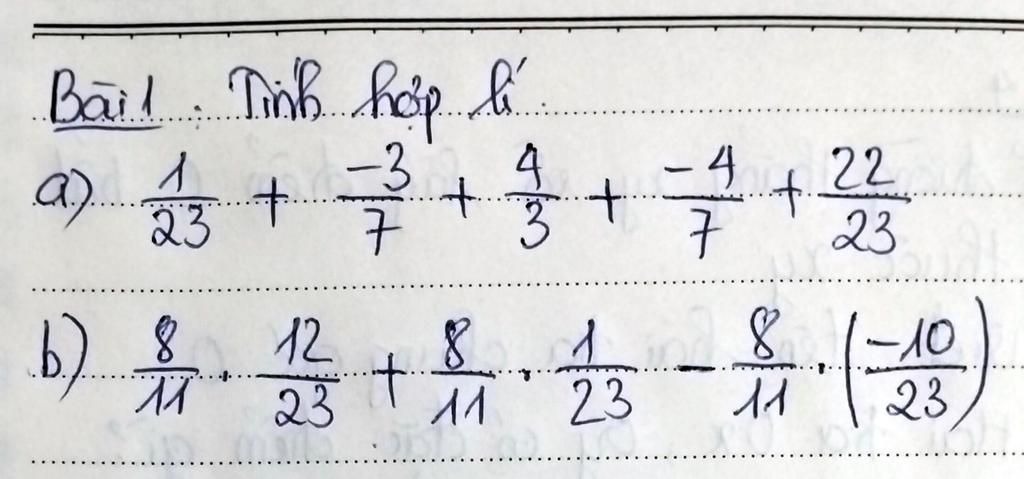 Bài 1 : Tính hợp lí.
a) 1/23 + -3/7 + 4/3 + -4/7 + 22/23
b) 8/11 . 12/23 + 8/11 . 1/23 - 8/11 . (-10/23)